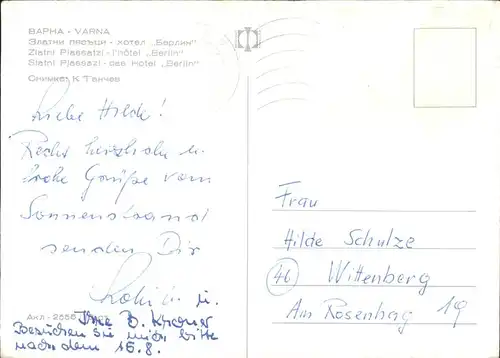 ВАРНА - VARNA
Златни пясъци - хотел „Берлин"
Zlatni Piassatzi - l'hôtel „Berlin"
Slatni Pjassazi - das Hotel „Berlin"
Снимка: К. Танчев
Liebe Hilde!
Recht herzliche u.
frohe Grüße vom
Sonnenstrand
senden Dir
u.
Акл - 2556
B.
Besuchen Sie mich bitte
nach dem 16.8.
Frau
Hilde Schulze
46 Wittenberg
Am Rosenhag 19